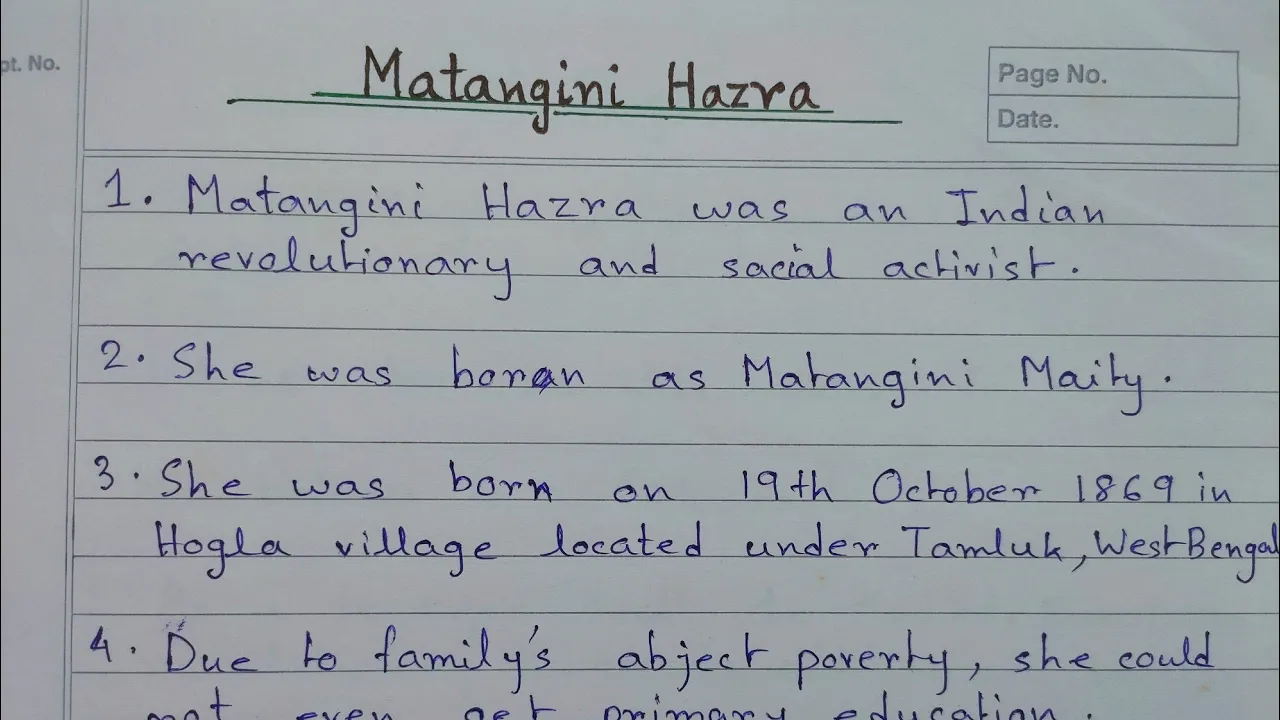 pt. No.
Matangini Hazra
Page No.
Date.
1. Matangini Hazra was an Indian
revolutionary and sacial activist.
2. She was boran as Matangini Maity.
3. She was born on 19th October 1869 in
Hogla village located under Tamluk, West Bengal
4. Due to family's abject poverty, she could
not even get primary education.